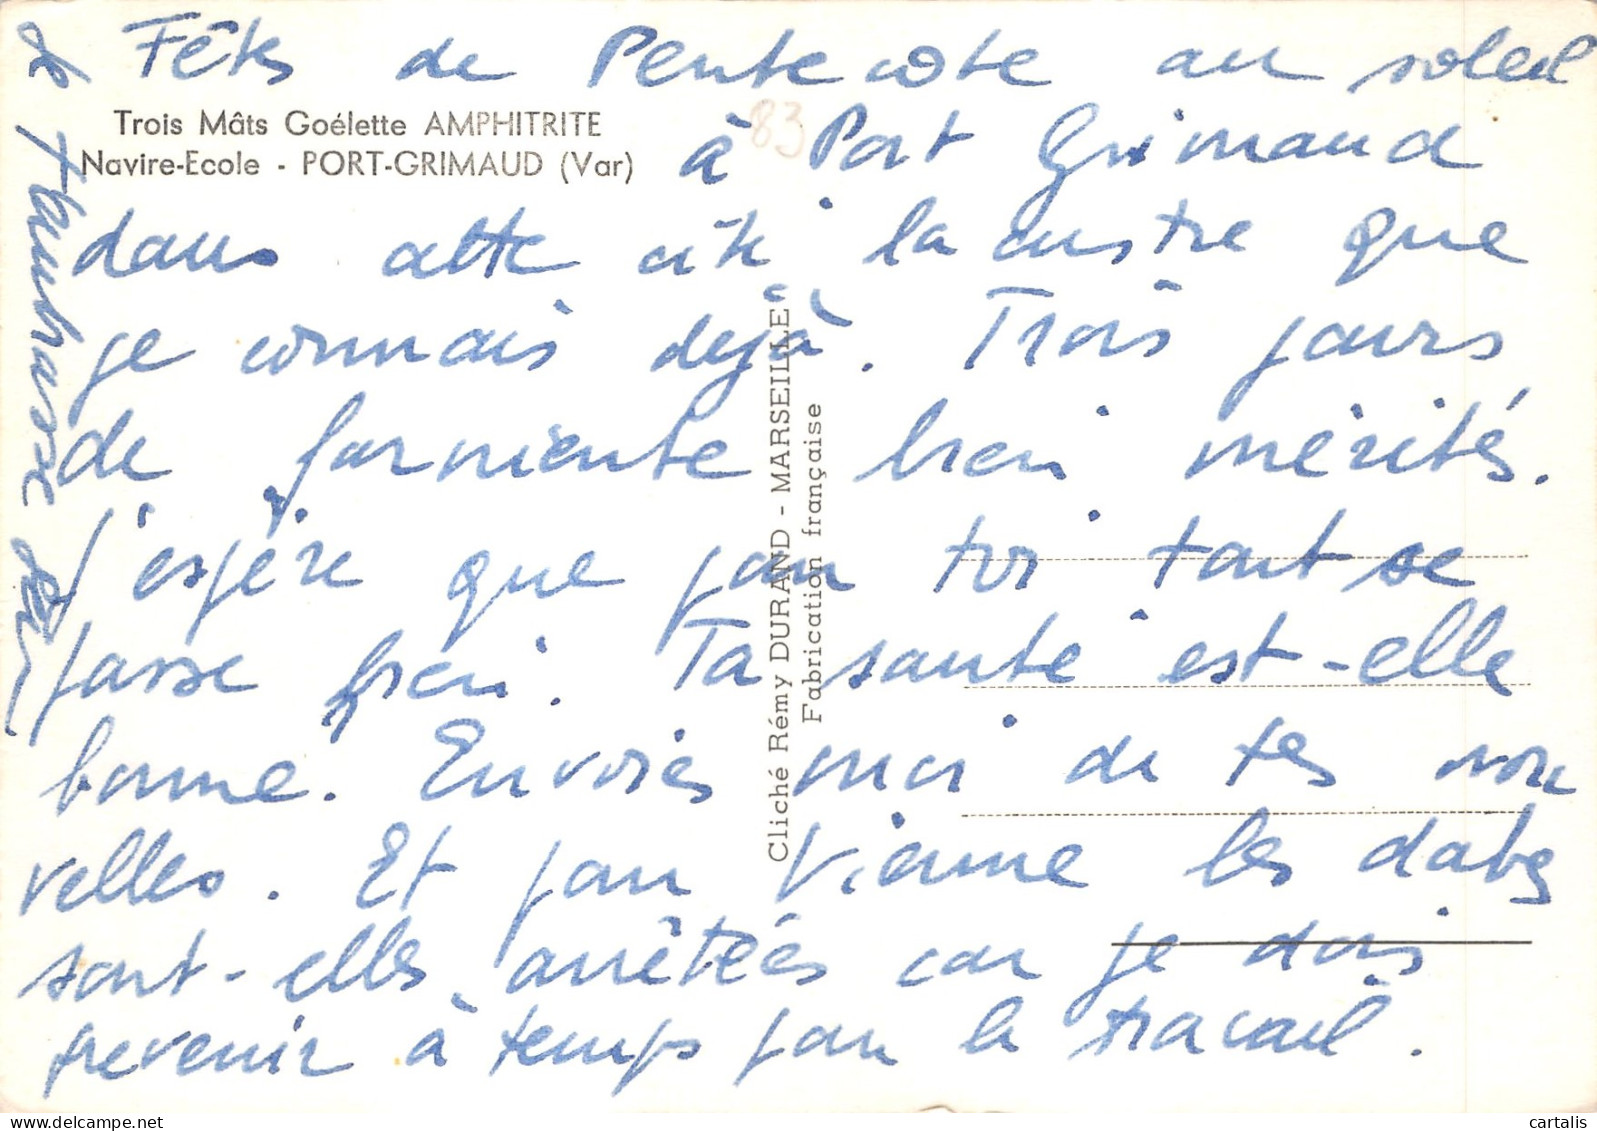 Fêtes de Pentecôte au soleil
Trois Mâts Goélette AMPHITRITE
Navire-Ecole - PORT-GRIMAUD (Var)
83
à Port Grimaud
dans cette cité lacustre que
je connais déjà. Trois jours
de farniente bien mérités.
j'espère que pour toi tout se
passe bien. Ta santé est-elle
bonne. Envoies moi de tes nou
velles. Et pour Vienne les dates
sont-elles arrêtées car je dois
prevenir à temps pour le travail.
Cliché Rémy DURAND - MARSEILLE
Fabrication française
cartalis